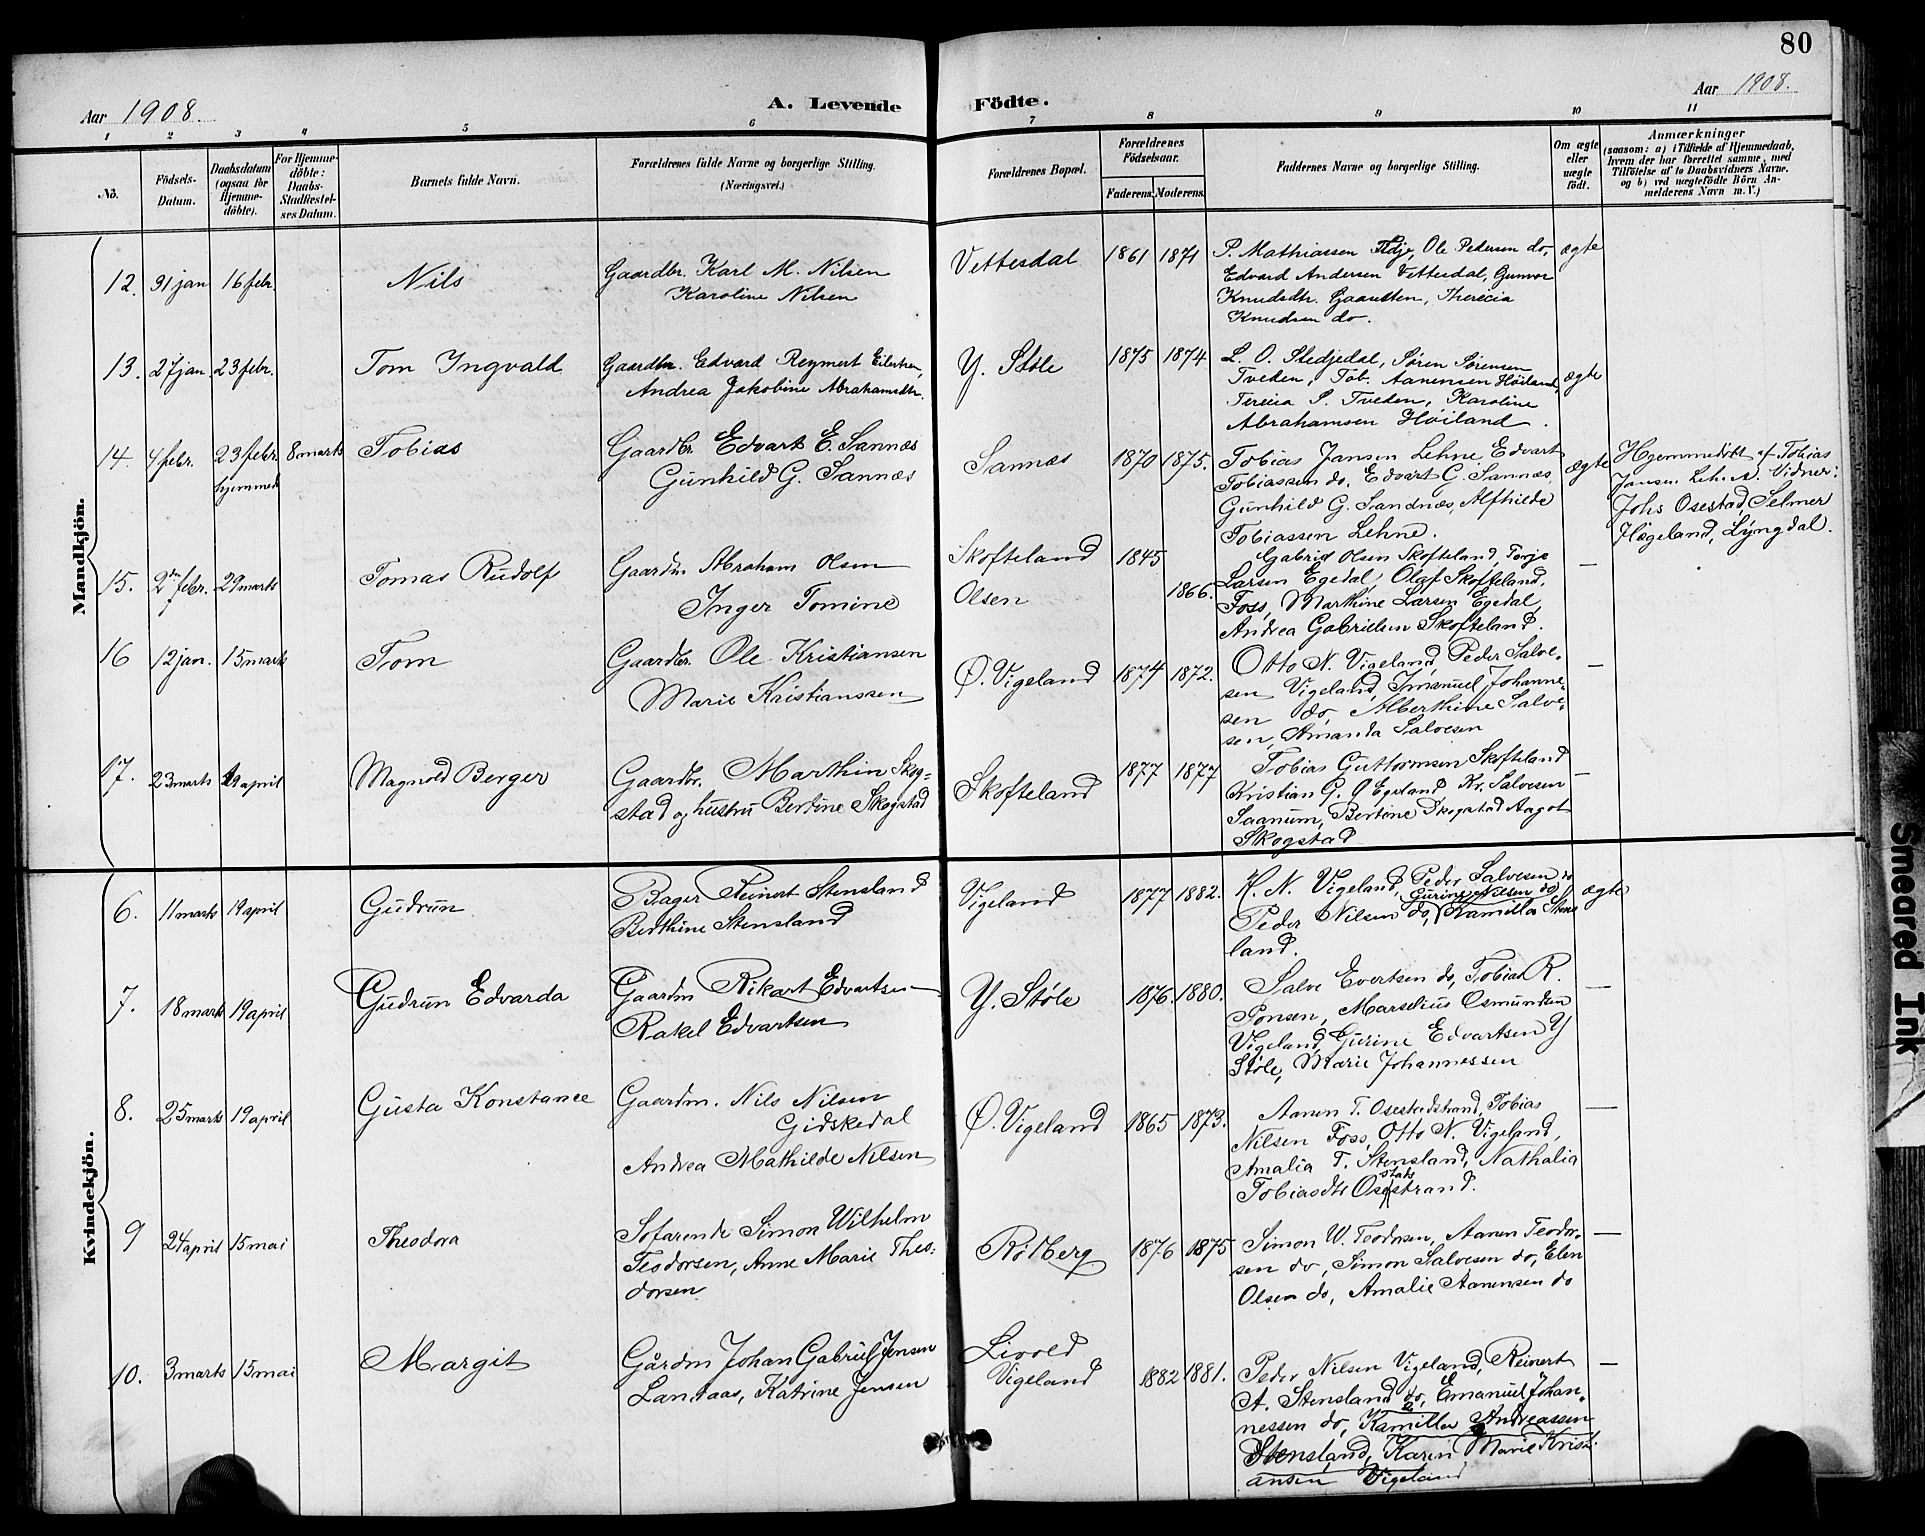 80
Aar 1908.
A. Levende Födte.
Aar 1908.
1 2 3 4 5 6 7 8 9 10 11
No.
Födsels-
Datum.
Daabsdatum
(ogsaa for
Hjemme-
döbte).
For Hjemme-
döbte:
Daabs-
Stadfæstel-
ses Datum.
Barnets fulde Navn.
Forældrenes fulde Navne og borgerlige Stilling.
(Næringsvei.)
Forældrenes Bopæl.
Forældrenes
Födselsaar.
Faderens.
Moderens.
Faddernes Navne og borgerlige Stilling.
Om ægte
eller
uægte
födt.
Anmærkninger
(saasom: a) i Tilfælde af Hjemmedaab,
hvem der har forrettet samme, med
Tilföielse af to Daabsvidners Navne.
og b) ved uægtefödte Börn An-
melderens Navn m. V.)
Mandkjön.
12. 31 jan 16 febr. Nils
Gaardbr. Karl M. Nilsen
Karoline Nilsen
Vettesdal 1861 1871
P. Mathiassen Ole Pedersen do,
Edvard Andersen Vettesdal, Gunvor
Knudsdtr. Therecia
Knudsen do.
ægte
13. 27 jan. 23 febr. Tom Ingvald
Gaardbr. Edvard Reymert Eilertsen,
Andrea Jakobine Abrahamsdtr.
Y. Støle 1875 1874
L. O. Stedjedal, Søren Sørensen
Tveden, Tob. Aanensen Høiland,
Terecia S. Tveden, Karoline
Abrahamsen Høiland.
ægte
14. 4 febr. 23 febr. 8 marts Tobias
hjemmed
Gaardbr. Edvart E. Sannæs
Gunhild G. Sannæs
Sannæs 1870 1875.
Tobias Jansen Lehne Edvart
Tobiassen do. Edvart G. Sannæs,
Gunhild G. Sandnæs, Alfhilde
Tobiassen Lehne.
ægte
Hjemmedöbt af Tobias
Jansen Vidner:
Johs Osestad, Selmer
Hægeland, Lyngdal.
15. 2den febr. 29 marts Tomas Rudolf
Gaardm Abraham Olsen
Inger Tomine
Skofteland 1845
Olsen 1866.
Gabriel Olsen Skofteland, Torje
Larsen Egedal, Olaf Skofteland,
Foss, Marthine Larsen Egedal,
Andrea Gabrielsen Skofteland.
—
16 12 jan. 15 marts Tom
Gaardbr. Ole Kristiansen
Marie Kristianssen
Ø. Vigeland 1874 1872.
Otto N. Vigeland, Peder Salve-
sen Vigeland, Imanuel Johanne-
sen do, Alberthine Salve-
sen, Amanda Salvesen
—
17. 23 marts 19 april Magnold Berger
Gaardbr. Marthin Skog-
stad og hustru Bertine Skogstad
Skofteland 1877 1877
Tobias Guttormsen Skofteland
Kristian G. Ø Egeland Kr. Salvesen
Saanum, Bertine Skogstad Aagot
Skogstad
—
Kvindekjön.
6. 11 marts 19 april Gudrun
Bager Reinert Stensland
Berthine Stensland
Vigeland 1877 1882.
K. N. Vigeland, Peder Salvesen do
Gurine Nilsen do
Peder Nilsen do, Kamilla Stens
land.
ægte
7. 18 marts 19 april Gudrun Edvarda
Gaardm Rikart Edvartsen
Rakel Edvartsen
Y. Støle 1876. 1880.
Salve Evertsen do, Tobias R.
Ponsen, Marselius Osmundsen
Vigeland, Gurine Edvartsen Y
Støle, Marie Johannessen
—
8. 25 marts 19 april Gusta Konstance
Gaardm. Nils Nilsen
Gidskedal
Andrea Mathilde Nilsen
Ø. Vigeland 1865 1873.
Aanen T. Osestadstrand, Tobias
Nilsen Foss, Otto N. Vigeland,
Amalia T. Stensland, Nathalia
stads
Tobiasdtr Osestrand.
—
9 24 april 15 mai Theodora
Sofarende Simon Wilhelm
Teodorsen, Anne Marie Theo:
dorsen
Rödberg 1876 1875
Simon W. Teodorsen, Aanen Teodor-
sen do, Simon Salvesen do, Elen
Olsen do, Amalie Aanensen do
—
10. 3 marts 15 mai Margit
Gårdm Johan Gabriel Jensen
Landaas, Katrine Jensen
Livold
Vigeland 1882 1881.
Peder Nilsen Vigeland, Reinert
A. Stensland do, Emanuel Johan-
nessen do, Kamilla Andreassen
Stensland, Karen Marie Kristi-
ansen Vigeland
—
Smeared Ink